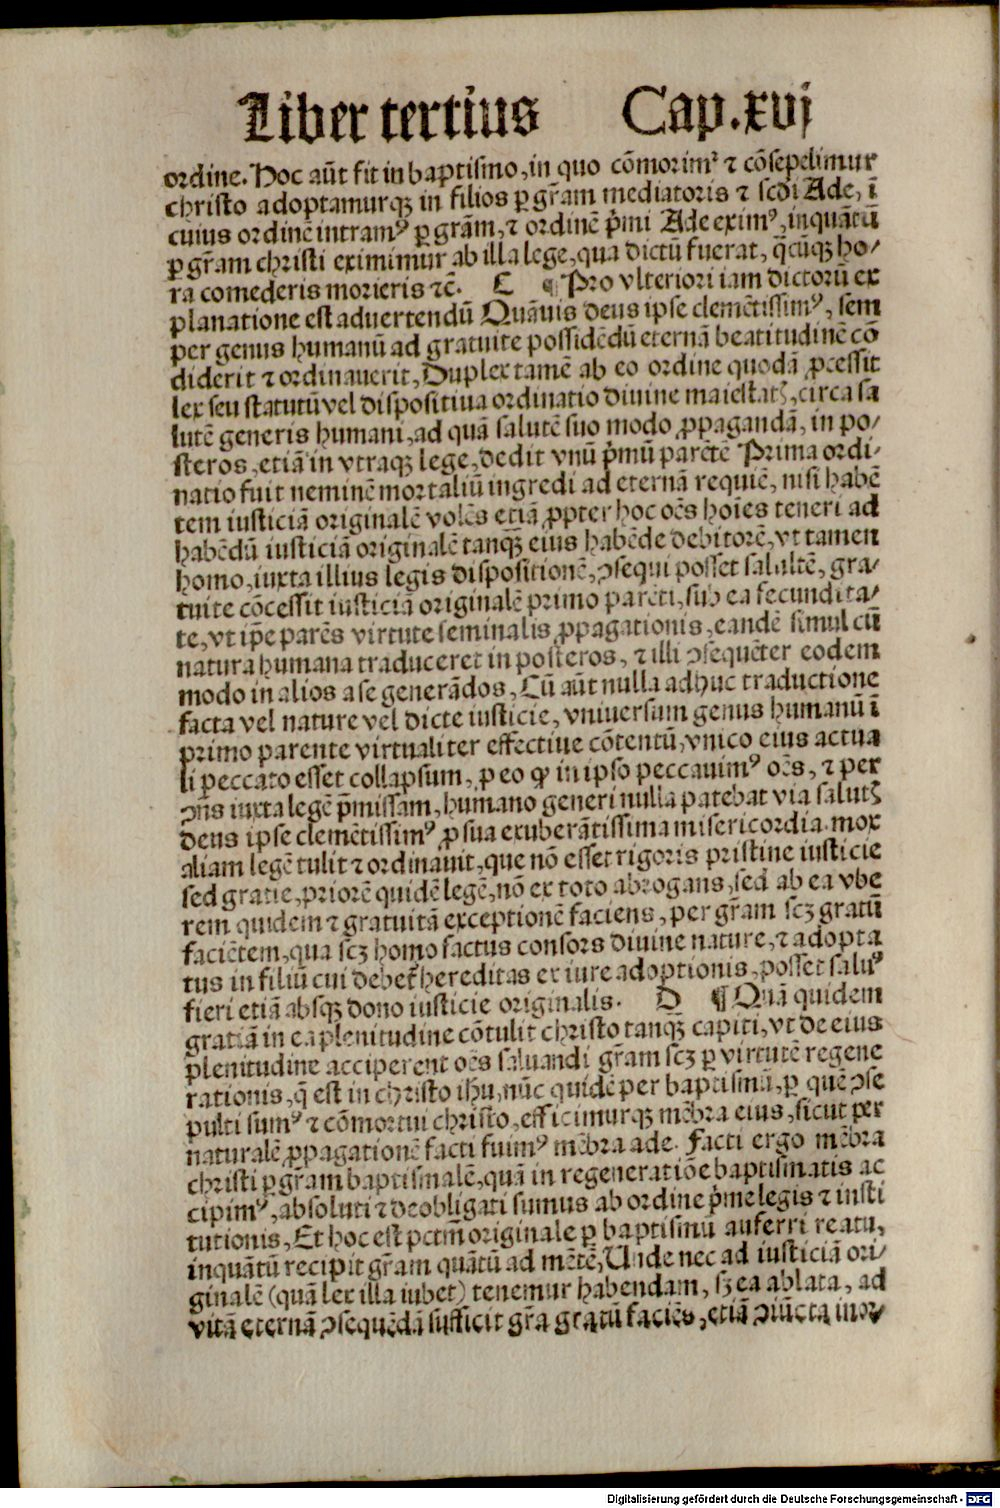 Liber tertius Cap.xvj
ordine. Hoc aūt fit in baptismo, in quo cōmorimꝰ ⁊ cōsepelimur
christo adoptamurqꝫ in filios ꝑ grām mediatoris ⁊ scdi Ade, ī
cuius ordinē intramꝰ ꝑ grām, ⁊ ordinē pͥmi Ade eximꝰ, inquātū
ꝑ grām christi eximimur ab illa lege, qua dictū fuerat, qͣcūqꝫ ho⸗
ra comederis morieris ⁊cē. C ¶ Pro vlteriori iam dictorū ex
planatione est aduertendū Quāuis deus ipse clemētissimꝰ, sem
per genus humanū ad gratuite possidēdū eternā beatitudinē cō
diderit ⁊ ordinauerit, Duplex tamē ab eo ordine quodā ꝓcessit
lex seu statutū vel dispositiua ordinatio diuine maiestatꝭ, circa sa
lutē generis humani, ad quā salutē suo modo ꝓpagandā, in po⸗
steros, etiā in vtraqꝫ lege, dedit vnū pͥmū parētē Prima ordi⸗
natio fuit neminē mortaliū ingredi ad eternā requiē, nisi habē
tem iusticiā originalē volēs etiā ꝓpter hoc oēs hoīes teneri ad
habēdū iusticiā originalē tanqꝫ eius habēde debitorē, vt tamen
homo, iuxta illius legis dispositionē, ꝯsequi posset salultē, gra⸗
tuite cōcessit iusticiā originalē primo parēti, sub ea fecundita⸗
te, vt ip̄e parēs virtute seminalis ꝓpagationis, eandē simul cū
natura humana traduceret in posteros, ⁊ illi ꝯsequēter eodem
modo in alios a se generādos, Cū aūt nulla adhuc traductione
facta vel nature vel dicte iusticie, vniuersum genus humanū ī
primo parente virtualiter effectiue cōtentū, vnico eius actua
li peccato esset collapsum, ꝑ eo ꝙ in ipso peccauimꝰ oēs, ⁊ per
ꝯn̄s iuxta legē p̄missam, humano generi nulla patebat via salutꝭ
deus ipse clemētissimꝰ ꝓ sua exuberātissima misericordia mox
aliam legē tulit ⁊ ordinauit, que nō esset rigoris pristine iusticie
sed gratie, priorē quidē legē, nō ex toto abrogans, sed ab ea vbe
rem quidem ⁊ gratuitā exceptionē faciens, per grām scꝫ gratū
faciētem, qua scꝫ homo factus consors diuine nature, ⁊ adopta
tus in filiū cui debet᷑ hereditas ex iure adoptionis, posset saluꝰ
fieri etiā absqꝫ dono iusticie originalis. D ¶ Quā quidem
gratiā in ea plenitudine cōtulit christo tanqꝫ capiti, vt de eius
plenitudine acciperent oēs saluandi grām scꝫ ꝑ virtutē regene
rationis, q̄ est in christo ihu, nūc quidē per baptismū, ꝑ quē ꝯse
pulti sumꝰ ⁊ cōmortui christo, efficimurqꝫ mēbra eius, sicut per
naturalē ꝓpagationē facti fuimꝰ mēbra ade. Facti ergo mēbra
christi ꝑ grām baptismalē, quā in regeneratiōe baptismatis ac
cipimꝰ, absoluti ⁊ deobligati sumus ab ordine pͥme legis ⁊ insti
tutionis, Et hoc est pctm̄ originale ꝑ baptismū auferri reatu,
inquātū recipit grām quātū ad mētē, Unde nec ad iusticiā ori⸗
ginalē (quā lex illa iubet) tenemur habendam, sꝫ ea ablata, ad
vitā eternā ꝯsequēdā sufficit grā gratū faciēs, etiā ꝯiūcta mor⸗
Digitalisierung gefördert durch die Deutsche Forschungsgemeinschaft - DFG